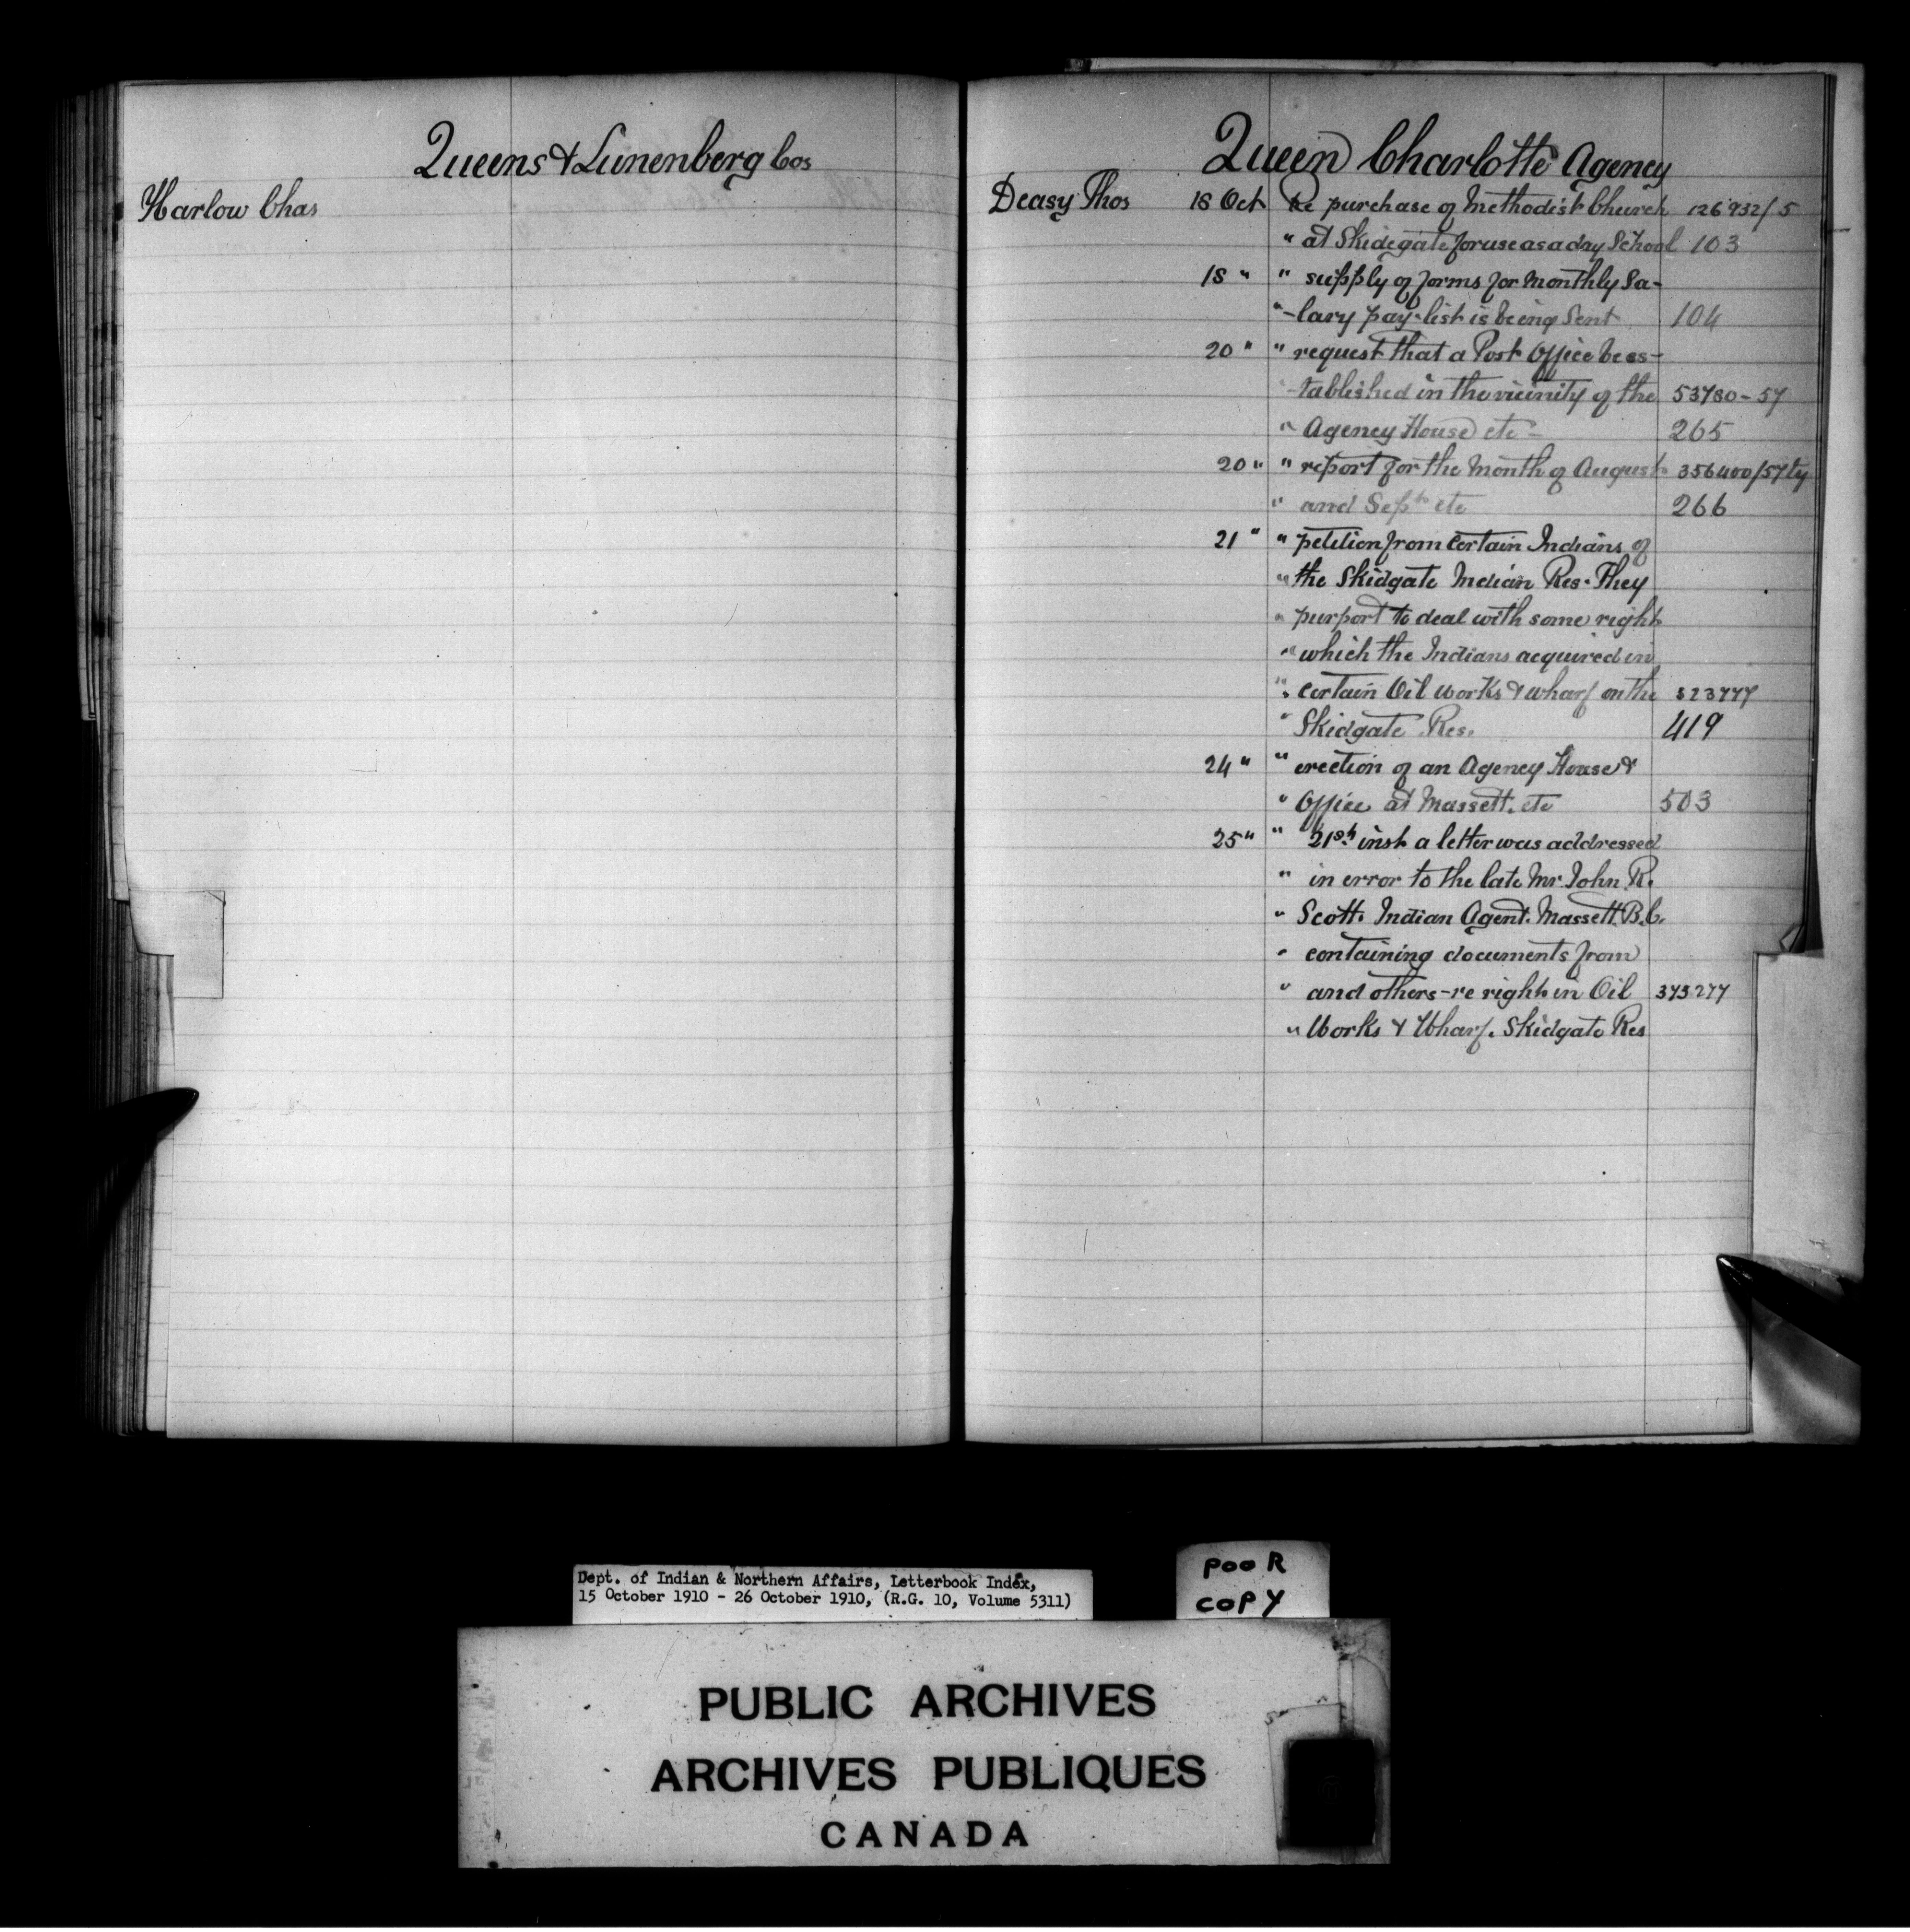 Queens & Lunenberg Cos
Harlow Chas
Queen Charlotte Agency
Deasy Thos 18 Oct Re purchase of Methodist Church 126932/5
" at Skidegate for use as a day School 103
18 " " supply of forms for Monthly Sa-
" -lary pay-list is being Sent 104
20 " " request that a Post Office be es-
" -tablished in the vicinity of the 53780-57
" Agency House etc - 265
20 " " report for the Month of August 356400/57
" and Sept etc 266
21 " " petition from Certain Indians of
" the Skidgate Indian Res. They
" purport to deal with some right
" which the Indians acquired in
" Certain Oil Works & wharf on the
" Skidgate Res. 419
24 " " erection of an Agency House &
" Office at Massett. etc 503
25 " " 21st inst a letter was addressed
" in error to the late Mr. John R.
" Scott. Indian Agent. Massett. B.C.
" containing documents from
" and others-re right in Oil 373277
" Works & Wharf. Skidgate Res
Dept. of Indian & Northern Affairs, Letterbook Index,
15 October 1910 - 26 October 1910, (R.G. 10, Volume 5311)
POOR
COPY
PUBLIC ARCHIVES
ARCHIVES PUBLIQUES
CANADA